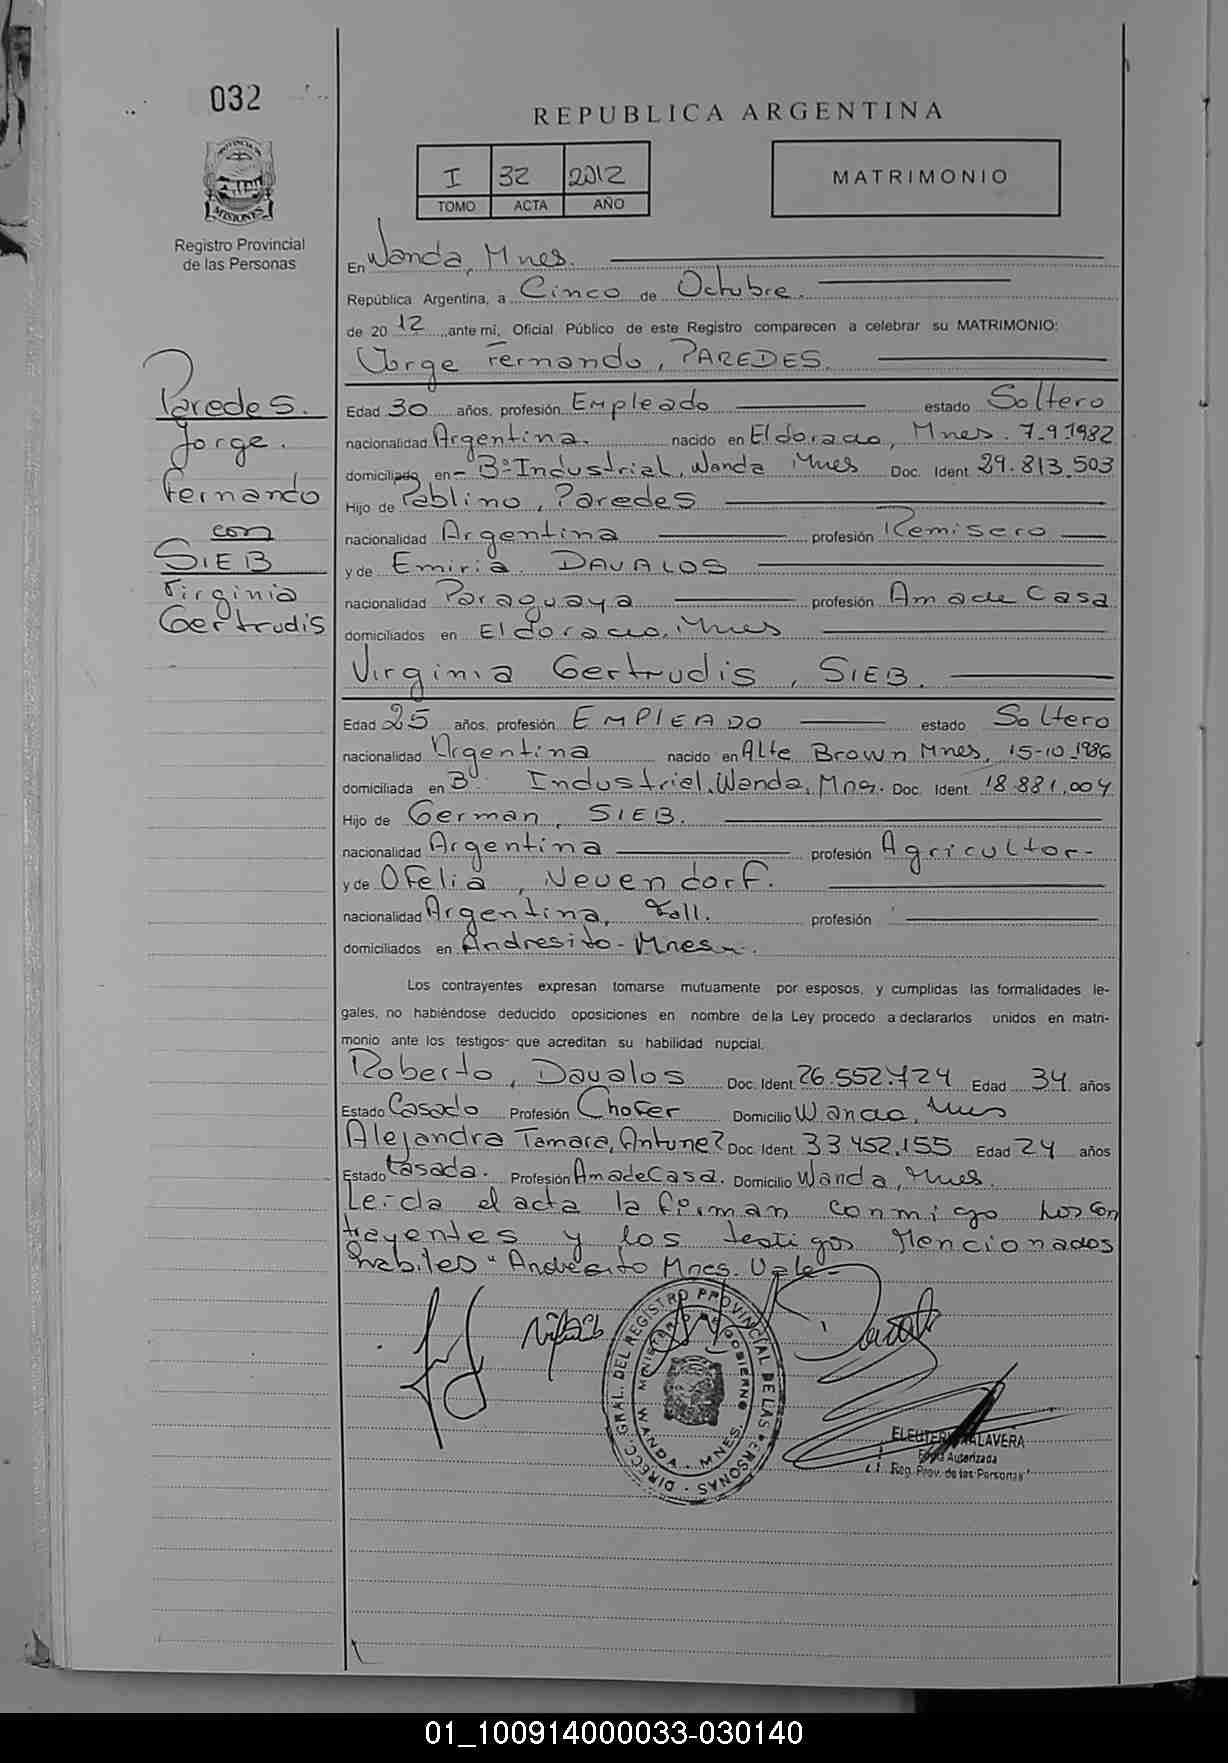 032
REPUBLICA ARGENTINA
PROVINCIA DE
MISIONES
I 32 2012
TOMO ACTA AÑO
MATRIMONIO
Registro Provincial
de las Personas
En Wanda, Mnes.
República Argentina, a Cinco de Octubre.
de 2012, ante mi, Oficial Público de este Registro comparecen a celebrar su MATRIMONIO:
Jorge Fernando, PAREDES.
Paredes.
Jorge.
Fernando
con
SIEB
Virginia
Gertrudis
Edad 30 años, profesión Empleado estado Soltero
nacionalidad Argentina. nacido en Eldorado, Mnes. 7.9.1982
domiciliado en - Bº Industrial, Wanda Mnes Doc. Ident. 29.813.503
Hijo de Pablino, Paredes
nacionalidad Argentina profesión Remisero
y de Emiria. DAVALOS
nacionalidad Paraguaya profesión Ama de Casa
domiciliados en Eldorado, Mnes
Virginia Gertrudis, SIEB.
Edad 25 años, profesión EMPLEADO estado Soltero
nacionalidad Argentina nacido en Alte Brown Mnes, 15-10-1986
domiciliada en Bº Industrial, Wanda, Mnes. Doc. Ident. 18.881.004
Hijo de German, SIEB.
nacionalidad Argentina profesión Agricultor-
y de Ofelia, Neuendorf.
nacionalidad Argentina, Fall. profesión
domiciliados en Andresito-Mnes.
Los contrayentes expresan tomarse mutuamente por esposos, y cumplidas las formalidades le-
gales, no habiéndose deducido oposiciones en nombre de la Ley procedo a declararlos unidos en matri-
monio ante los testigos que acreditan su habilidad nupcial.
Roberto, Davalos Doc. Ident. 26.552.724 Edad 34 años
Estado Casado Profesión Chofer Domicilio Wanda, Mnes
Alejandra Tamara, Antunez Doc. Ident. 33.452.155 Edad 24 años
Estado Casada. Profesión Ama de Casa. Domicilio Wanda, Mnes.
Leida el acta la firman conmigo los con
trayentes y los testigos Mencionados
habiles "Andresito Mnes. Vale-
DIRECC. GRAL. DEL REGISTRO PROVINCIAL DE LAS PERSONAS
MINISTERIO DE GOBIERNO
WANDA - MNES.
TALAVERA
Firma Autorizada
Reg. Prov. de las Personas
01_100914000033-030140